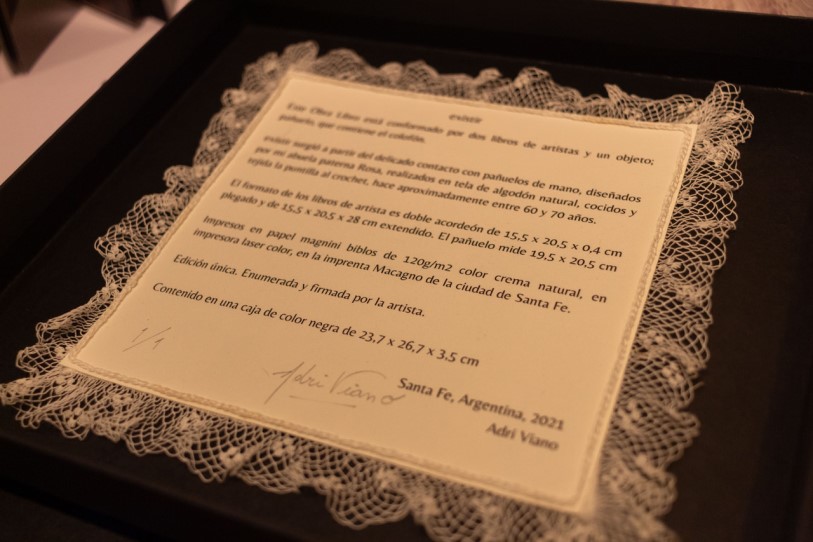 existir
Este Obra Libro está conformado por dos libros de artistas y un objeto;
pañuelo, que contiene el colofón.
existir surgió a partir del delicado contacto con pañuelos de mano, diseñados
por mi abuela paterna Rosa, realizados en tela de algodón natural, cocidos y
tejida la puntilla al crochet, hace aproximadamente entre 60 y 70 años.
El formato de los libros de artista es doble acordeón de 15,5 x 20,5 x 0,4 cm
plegado y de 15,5 x 20,5 x 28 cm extendido. El pañuelo mide 19,5 x 20,5 cm
Impresos en papel magnini biblos de 120g/m2 color crema natural, en
impresora laser color, en la imprenta Macagno de la ciudad de Santa Fe.
Edición única. Enumerada y firmada por la artista.
Contenido en una caja de color negra de 23,7 x 26,7 x 3,5 cm
1/1
Adri Viano
Santa Fe, Argentina, 2021
Adri Viano